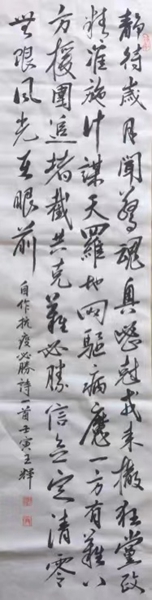 静待岁月闻莺魂真恶冠戎未撤狂党政
精准施计谋天罗地网驱病魔一方有难八
方援围追堵截共克难必胜信念定清零
无限风光在眼前
自作抗疫必胜诗一首壬寅王辉